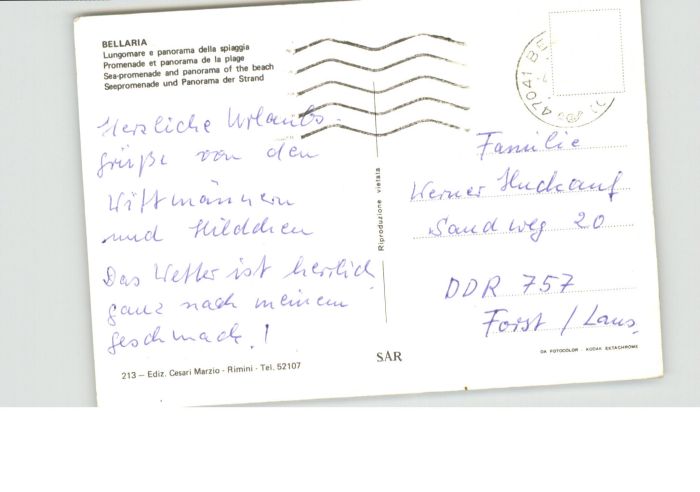 BELLARIA
Lungomare e panorama della spiaggia
Promenade et panorama de la plage
Sea-promenade and panorama of the beach
Seepromenade und Panorama der Strand
Herzliche Urlaubs-
grüße von den
Wittmännern
und Hildchen
Das Wetter ist herrlich
ganz nach meinem
geschmack!
213 – Ediz. Cesari Marzio - Rimini - Tel. 52107
Riproduzione vietata
SAR
47041 BE
Familie
Werner Huckauf
Sandweg 20
DDR 757
Forst / Laus.
DA FOTOCOLOR - KODAK EKTACHROME